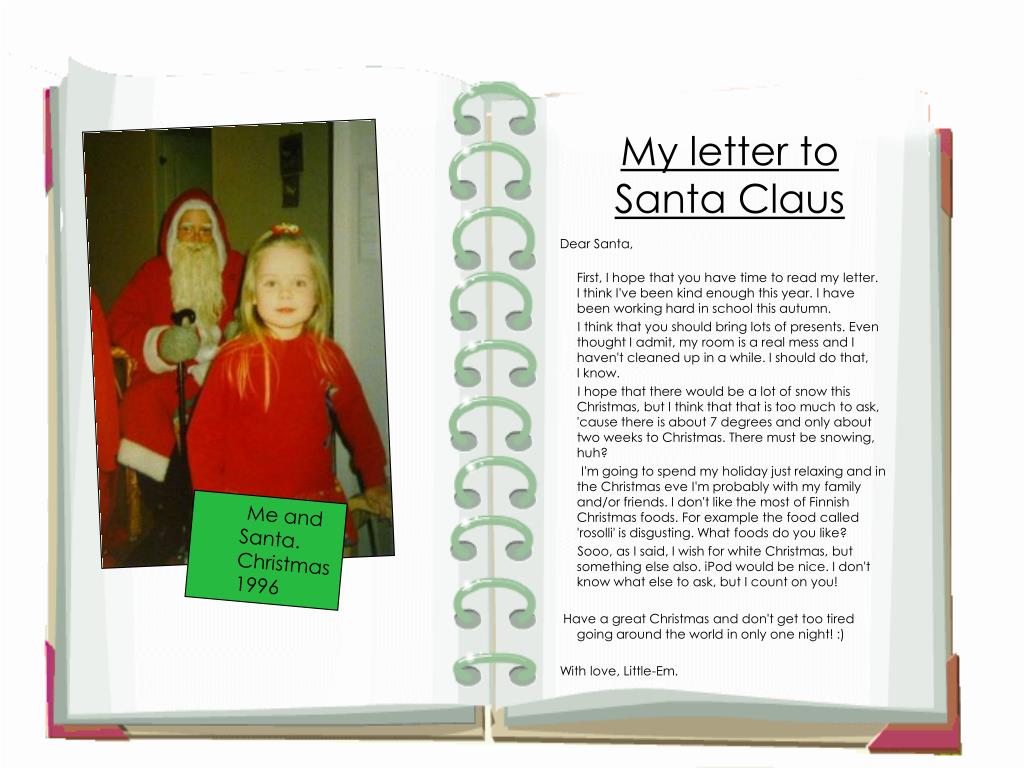 Me and
Santa.
Christmas
1996
My letter to
Santa Claus
Dear Santa,
First, I hope that you have time to read my letter.
I think I've been kind enough this year. I have
been working hard in school this autumn.
I think that you should bring lots of presents. Even
thought I admit, my room is a real mess and I
haven't cleaned up in a while. I should do that,
I know.
I hope that there would be a lot of snow this
Christmas, but I think that that is too much to ask,
'cause there is about 7 degrees and only about
two weeks to Christmas. There must be snowing,
huh?
I'm going to spend my holiday just relaxing and in
the Christmas eve I'm probably with my family
and/or friends. I don't like the most of Finnish
Christmas foods. For example the food called
'rosolli' is disgusting. What foods do you like?
Sooo, as I said, I wish for white Christmas, but
something else also. iPod would be nice. I don't
know what else to ask, but I count on you!
Have a great Christmas and don't get too tired
going around the world in only one night! :)
With love, Little-Em.